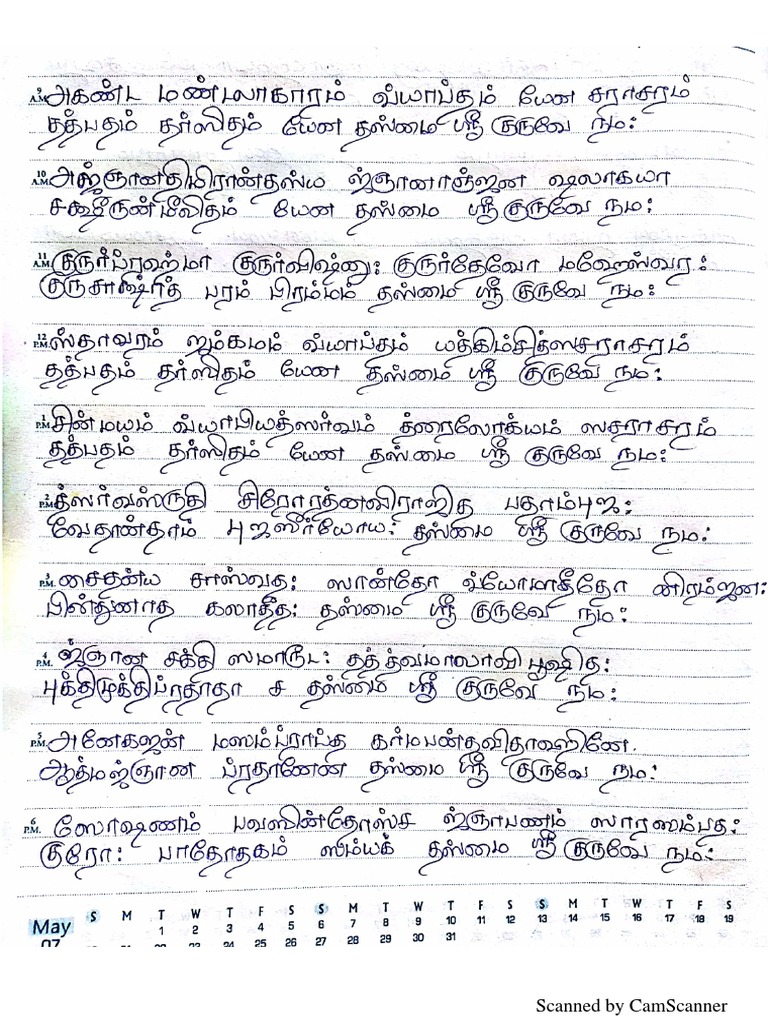 9 A.M. அகண்ட மண்டலாகாரம் வ்யாப்தம் யேன சராசரம்
தத்பதம் தர்ஸிதம் யேன தஸ்மை ஸ்ரீ குருவே நம:
10 A.M. அஜ்ஞானதிமிராந்தஸ்ய ஜ்ஞானாஞ்ஜன ஷலாகயா
சக்ஷீருன்மீலிதம் யேன தஸ்மை ஸ்ரீ குருவே நம:
11 A.M. குருர்ப்ரஹ்மா குருர்விஷ்னு: குருர்தேவோ மஹேஸ்வர:
குருசாஷிரித் பரம் பிரம்மம் தஸ்மை ஸ்ரீ குருவே நம:
12 P.M. ஸ்தாவரம் ஜங்கமம் வ்யாப்தம் யத்கிம்சித்ஸசராசரம்
தத்பதம் தர்ஸிதம் யேன தஸ்மை ஸ்ரீ குருவே நம:
1 P.M. சின்மயம் வ்யாபியத்ஸர்வம் த்ரைலோக்யம் ஸசராசரம்
தத்பதம் தர்ஸிதம் யேன தஸ்மை ஸ்ரீ குருவே நம:
2 P.M. த்ஸர்வஸ்ருதி சிரோரத்னவிராஜித பதாம்புஜ:
வேதாந்தாம் புஜஸூர்யோய: தஸ்மை ஸ்ரீ குருவே நம:
3 P.M. சைதன்ய சாஸ்வத: ஸாந்தோ வ்யோமாதீதோ நிரம்ஜன:
பிந்துனாத கலாதீத: தஸ்மை ஸ்ரீ குருவே நம:
4 P.M. ஜ்ஞான சக்தி ஸமாரூட: தத்த்வமாலாவிபூஷித:
புக்திமுக்திப்ரதாதா ச தஸ்மை ஸ்ரீ குருவே நம:
5 P.M. அனேகஜன் மஸம்ப்ராப்த கர்மபன்தவிதாஹினே.
ஆத்மஜ்ஞான ப்ரதானேன தஸ்மை ஸ்ரீ குருவே நம:
6 P.M. ஸோஷணம் பவஸின்தோஸ்ச ஜ்ஞாபணம் ஸாரஸம்பத:
குரோ: பாதோதகம் ஸம்யக் தஸ்மை ஸ்ரீ குருவே நம:
S M T W T F S S M T W T F S S M T W T F S
May 1 2 3 4 5 6 7 8 9 10 11 12 13 14 15 16 17 18 19
07 27 28 29 30 31
Scanned by CamScanner